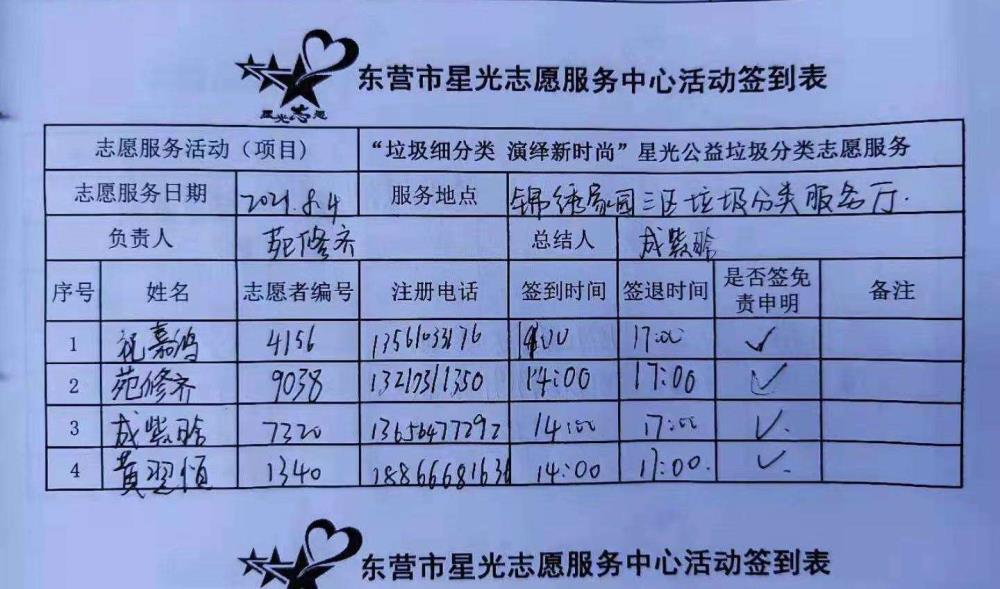 星光志愿
东营市星光志愿服务中心活动签到表
志愿服务活动（项目） “垃圾细分类 演绎新时尚”星光公益垃圾分类志愿服务
志愿服务日期 2021.8.4 服务地点 锦绣家园三区垃圾分类服务厅.
负责人 苑修齐 总结人 成紫晗
序号 姓名 志愿者编号 注册电话 签到时间 签退时间 是否签免责申明 备注
1 祝嘉鸿 4156 13561033176 14:00 17:00 ✓
2 苑修齐 9038 13217311350 14:00 17:00 ✓
3 成紫晗 7320 13656477292 14:00 17:00 ✓
4 黄翌恒 1340 1886668163 14:00 17:00. ✓
东营市星光志愿服务中心活动签到表